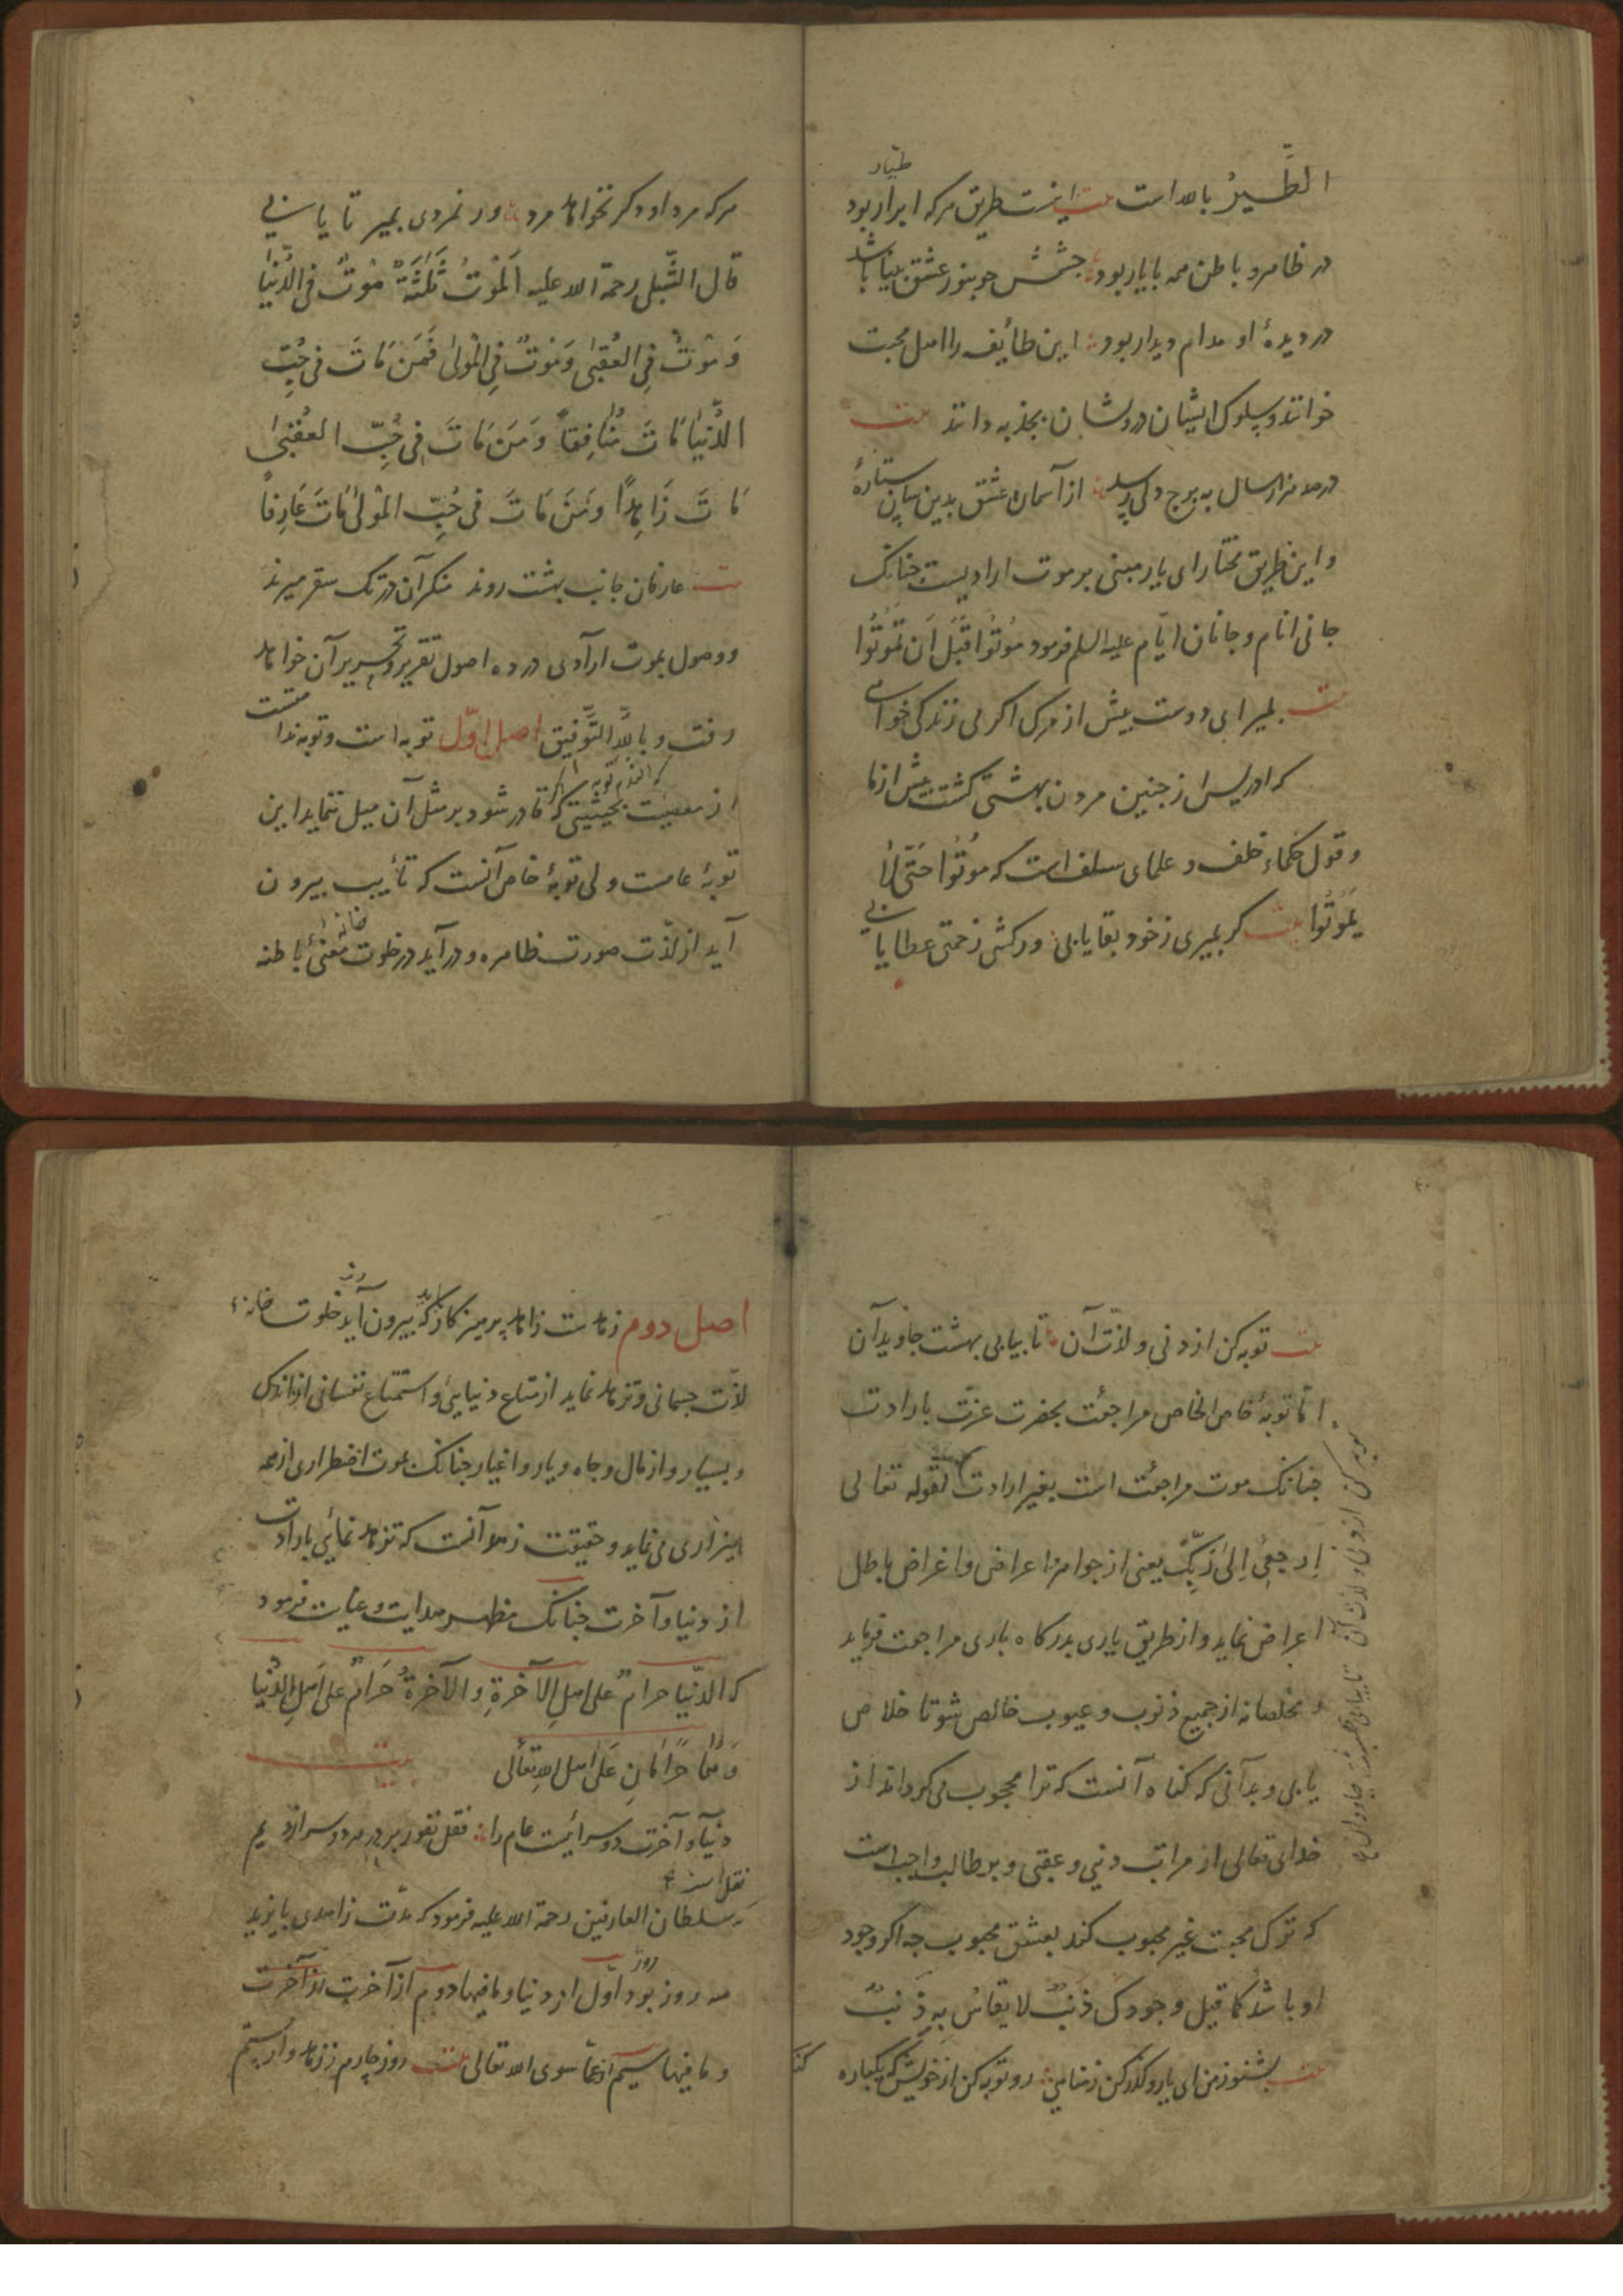 الطَّیرُ باللہ است بیت اینست طریق هرکه ابرار بود
طیار
در ظاهر و باطن همه با یار بود جشمش جو بنور عشق بینا باشد
در دیدهٔ او مدام دیدار بود این طایفه را اهل محبت
خوانند و سلوک ایشان و روشان بجذبه دانند بیت
در صد هزار سال به برج دلی رسد از آسمان عشق بدین سان ستارهٔ
و این طریق مختار ای یار مبنی بر موت ارادیست جنانک
جانی انام و جانان ایّام علیه السلم فرمود مُوتُوا قَبْلَ اَن تَمُوتُوا
بیت بمیر ای دوست بیش از مرک اکر می زندکی خواهی
که ادریس از جنین مردن بهشتی کشت بیش از ما
و قول حکماء خلف و علمای سلف است که مُوتُوا حَتّی لَا
یَمُوتُوا بیت کر بمیری ز خود بقا یابی ور کشی زحمتی عطا یابی
هرکه مرد او دکر نخواهد مرد ور نمردی بمیر تا یابی
قال الشّبلی رحمة اللہ علیه اَلمَوْتُ ثَلٰثَةٌ مَوْتٌ فی الدُّنیَا
وَمَوْتٌ فِی العُقبٰی وَمَوْتٌ فِی المَوْلٰی فَمَن مَاتَ فی حُبِّ
الدُّنیَا مَاتَ مُنَافِقاً وَمَن مَاتَ فِی حُبِّ العُقبٰی
مَاتَ زَاهِدًا وَمَن مَاتَ فی حُبِّ المَوْلٰی مَاتَ عَارِفاً
بیت عارفان جانب بهشت روند منکر آن در تک سقر میرند
و وصول بموت ارادی در ده اصول تقریر و تحریر آن خواهد
رفت و باللّٰہ التَّوفیق اصل اوّل توبه است و توبه ندامتست
که الندم توبه
از معصیت بحیثیتی که اکر قادر شود بر مثل آن میل ننماید این
توبهٔ عامست ولی توبهٔ خاص آنست که تأیب بیرون
آید از لذّت صورت ظاهره و در آید در خلوت خانهٔ معنیٔ باطنه
بیت توبه کن از دنی و لذّت آن تا بیابی بهشت جاوید آن
امّا توبهٔ خاص الخاص مراجعت بحضرت عزّت بارادت
جنانک موت مراجعت است بغیر ارادت لقوله تعالی
اِرجِعِی اِلیٰ رَبِّکِ یعنی از جواهر و اعراض و اغراض باطل
اعراض نماید و از طریق یاری بدرکاه باری مراجعت فرماید
و مخلصانه از جمیع ذنوب و عیوب خالص شو تا خلاص
یابی و بدانی که کناه آنست که ترا محجوب می کرداند از
خدای تعالی از مراتب دنیی و عقبی و بر طالب واجب است
که ترک محبت غیر محبوب کند بعشق محبوب جه اکر وجود
او باشد کما قیل وجودک ذَنبٌ لا یقاسُ بِهِ ذَنبٌ
بیت بشنو ز من ای یار و کذر کن ز مناهی رو توبه کن از خویش که یکباره
توبه کن از دنی و لذت آن تا بیابی بهشت جاودان
اصل دوم زهد است زاهد پرهیزکار که بیرون آید از خلوت خانهٔ
لذّت جسمانی و تزهد نماید از متاع دنیایی و استمتاع نفسانی از اندک
و بسیار و از مال و جاه و یار و اغیار جنانک بموت اضطراری از همه
بیزاری می نماید و حقیقت زهد آنست که تزهد نمائی بارادت
از دنیا و آخرت جنانک مظهر هدایت و عنایت فرمود
که الدّنیا حرامٌ علی اهلِ الآخرةِ و الآخرةُ حَرامٌ علی اَهلِ الدُّنیَا
وَهُمَا حَرَامَانِ عَلیٰ اهلِ اللہِ تَعَالی بیت
دنیا و آخرت دو سرائیست عام را قفل نفور بر در هر دو سرا زدیم
نقل است
که سلطان العارفین رحمة اللہ علیه فرمود که مدّت زاهدی بایزید
سه روز بود روز اوّل از دنیا و ما فیها دوم از آخرت
و ما فیها سیم از ما سوی اللہ تعالی بیت روز چارم ز زهد وارستم